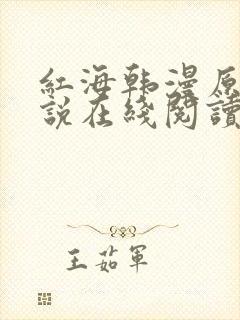 紅海韩漫原
説在綫閱讀
王茹軍